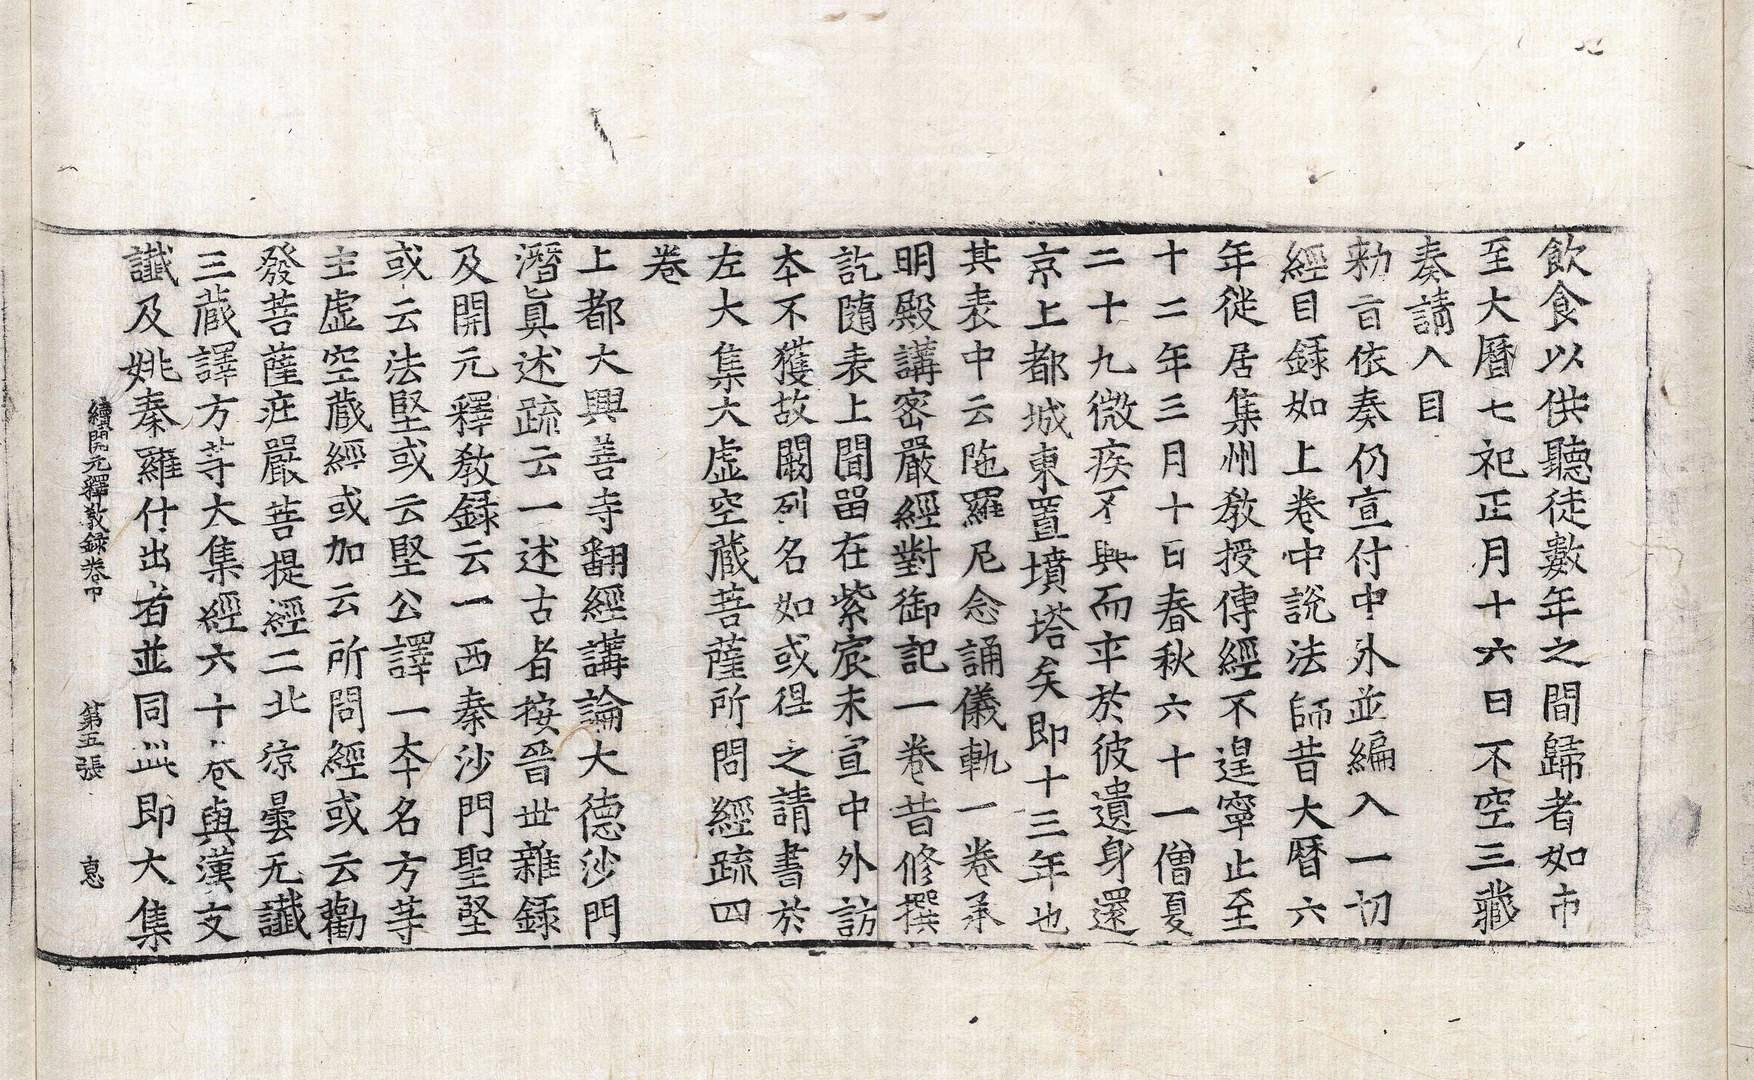 飲食以供聽徒數年之間歸者如市
至大曆七祀正月十六日不空三藏
奏請入目
勑旨依奏仍宣付中外並編入一切
經目録如上卷中說法師昔大曆六
年從居集州教授傳經不遑寧止至
十二年三月十日春秋六十一僧夏
二十九微疾不興而卒於彼遺身還
京上都城東置墳塔矣即十三年也
其表中云陁羅尼念誦儀軌一卷承
明殿講密嚴經對御記一卷昔修撰
訖隨表上聞留在紫宸未宣中外訪
本不獲故闕列名如或得之請書於
左大集大虛空藏菩薩所問經疏四
卷
上都大興善寺翻經講論大德沙門
潛真述疏云一述古者按晉世雜録
及開元釋教録云一西秦沙門聖堅
或云法堅或云堅公譯一本名方等
主虛空藏經或加云所問經或云勸
發菩薩莊嚴菩提經二北涼曇无讖
三藏譯方等大集經六十卷與漢文
讖及姚秦羅什出者並同此即大集
續開元釋教録卷中 第五張 息